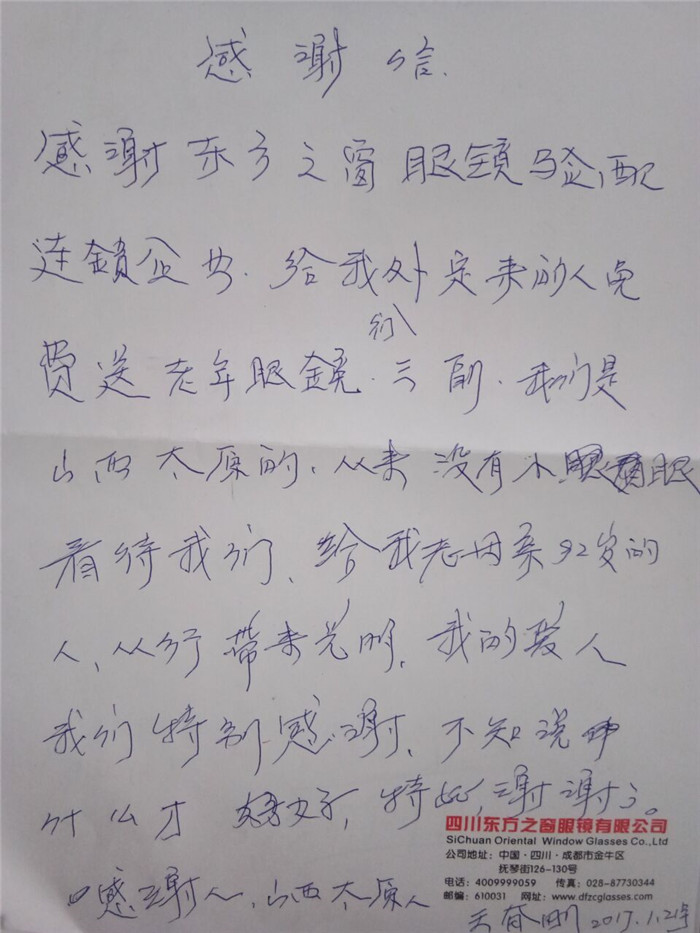 感谢信
感谢东方之窗眼镜验配
连鎖企业.给我外定来的人免
们
费送老年眼鏡.三付.我们是
山西太原的.从来没有小眼
看待我们、给我老母亲92岁的
人、从行带来光明.我的爱人
我们特别感谢.不知说
什么才好,特此,谢谢了。
四川东方之窗眼镜有限公司
SiChuan Oriental Window Glasses Co.,Ltd
公司地址:中国·四川·成都市金牛区
抚琴街126-130号
电话:4009999059 传真:028-87730344
邮编:610031 网址:www.dfzcglasses.com
感谢人、山西太原人
2017.1.21号